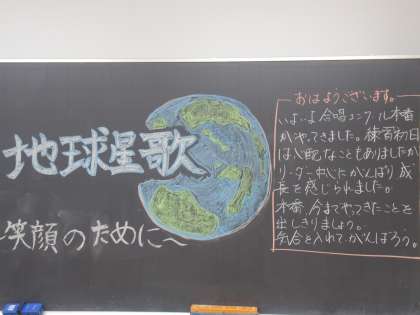 地球星歌
～笑顔のために～
おはようございます。
いよいよ合唱コンクール本番
がやってきました。練習初日
は心配なこともありましたが
リーダー中心にがんばり成
長を感じられました。
本番、今までやってきたことを
出しきりましょう。
気合を入れてがんばろう。